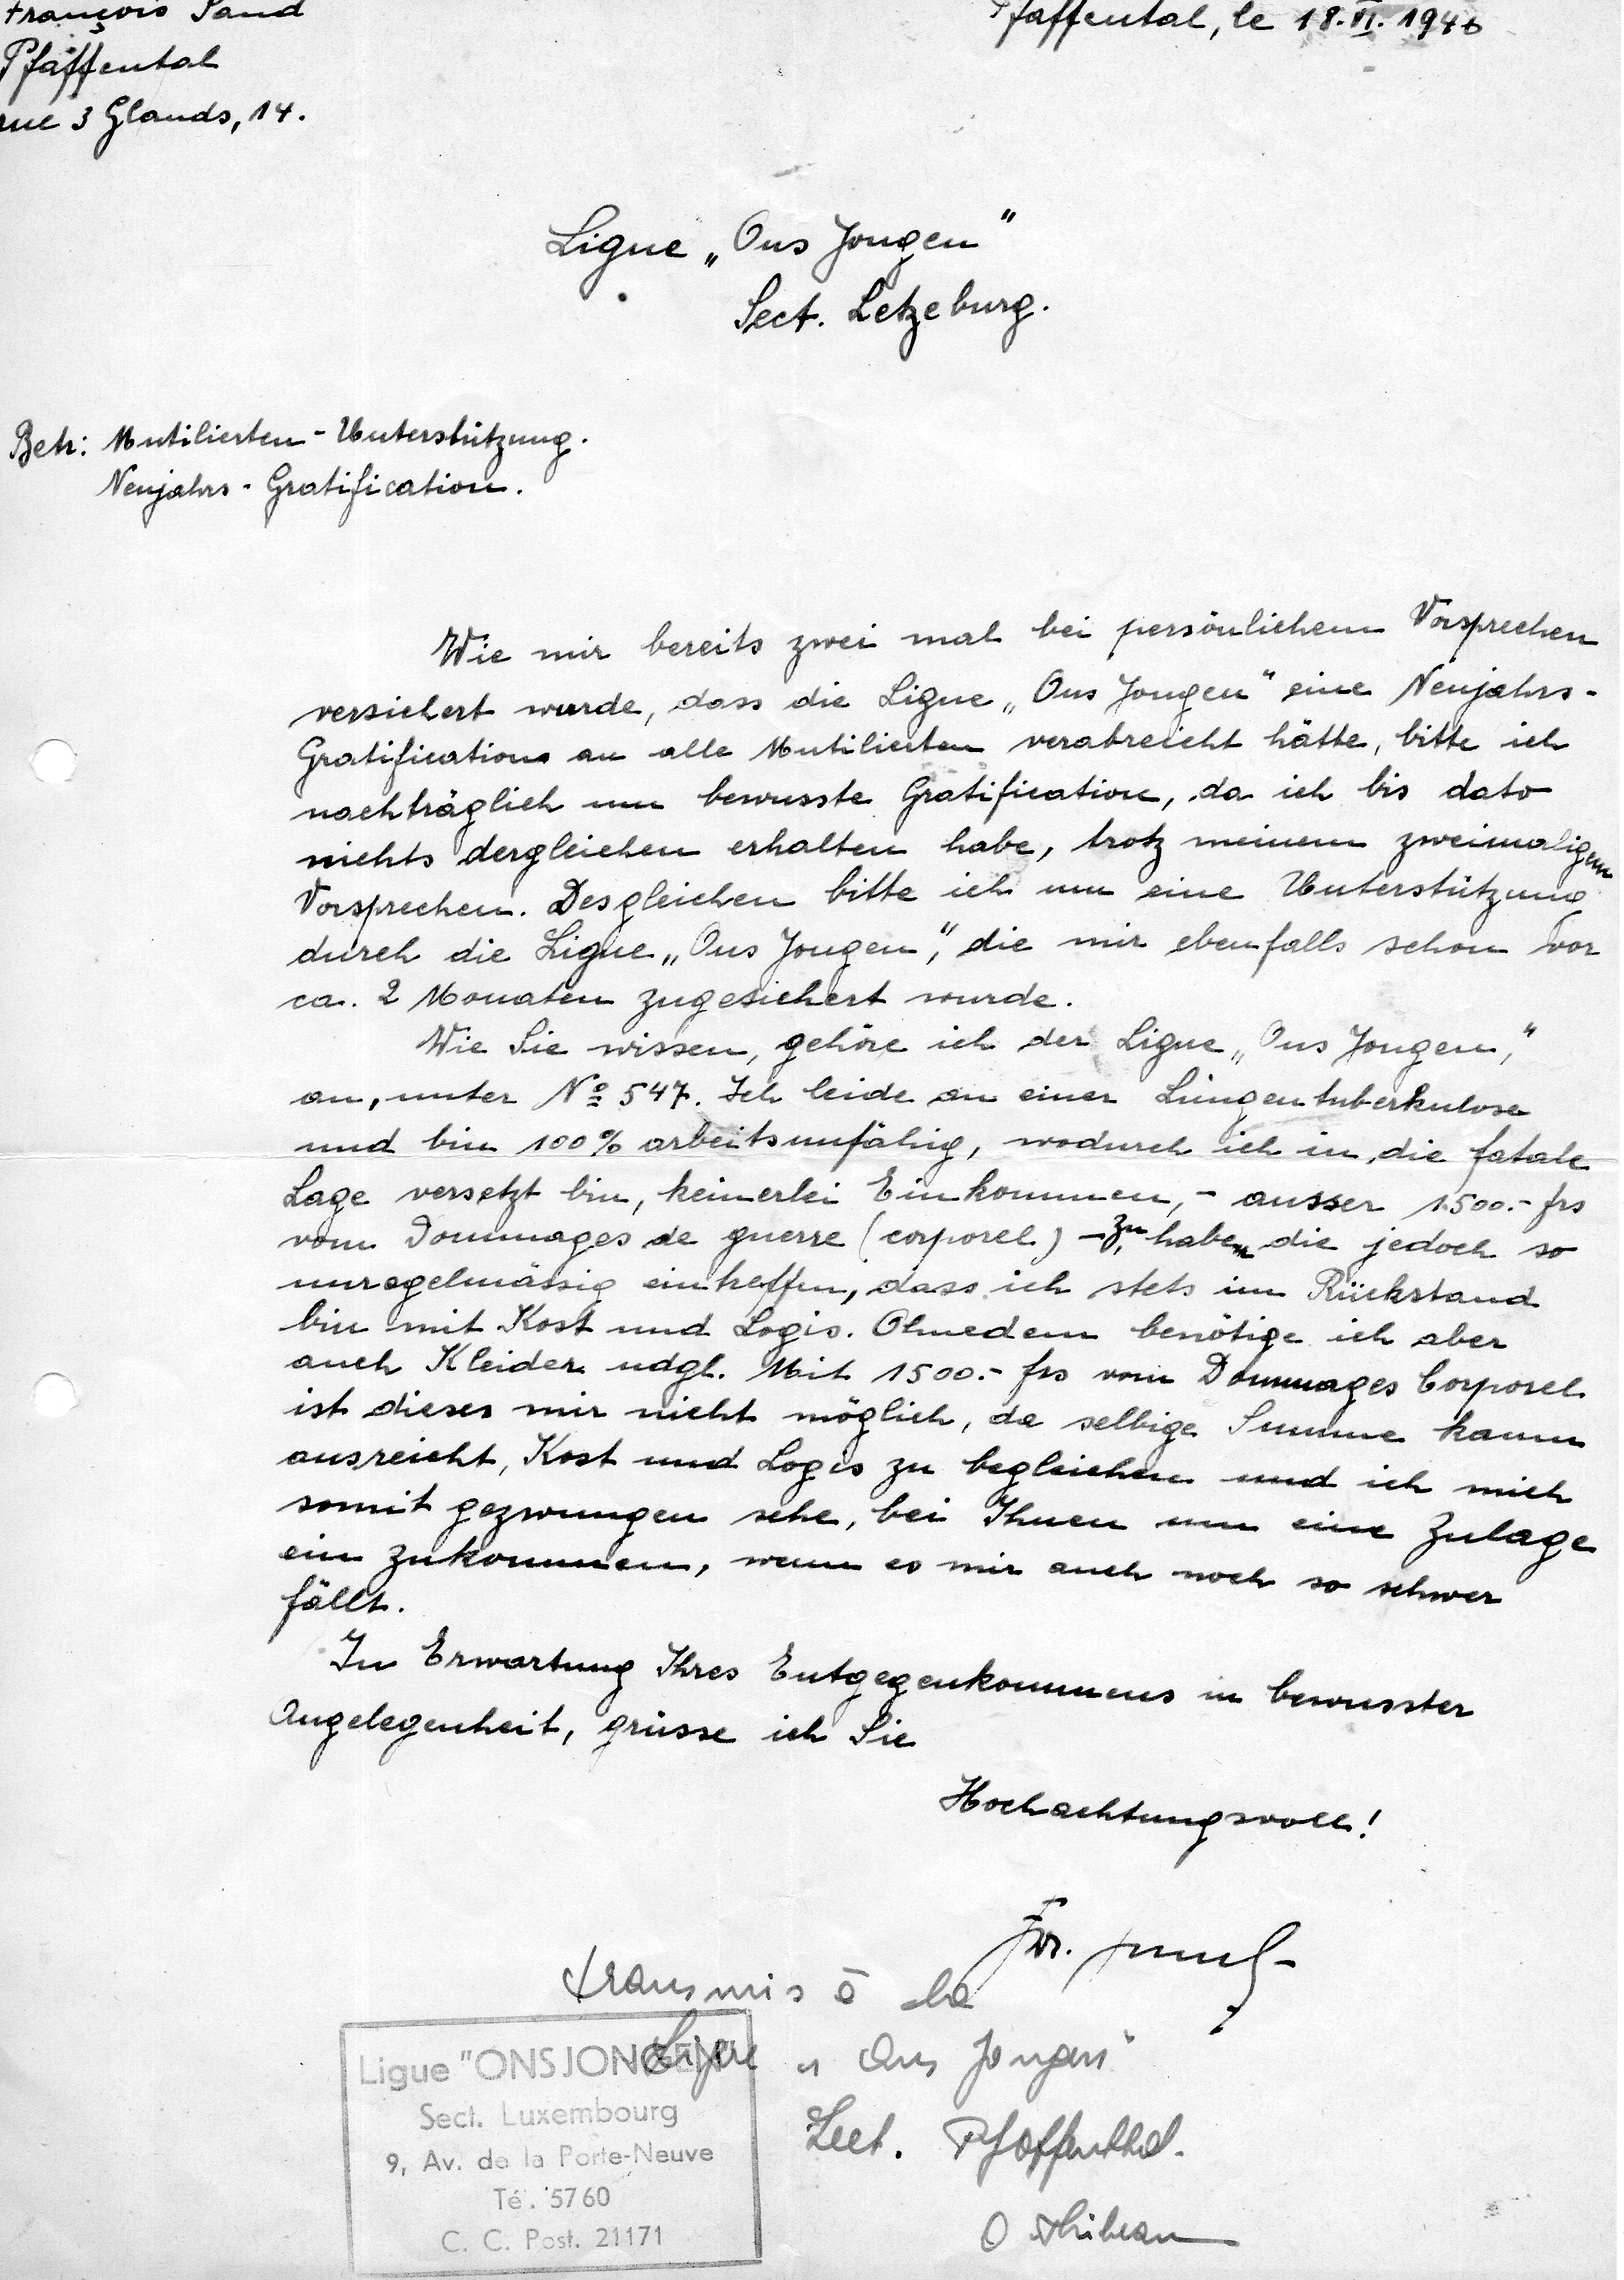 François Sand
Pfaffental
rue 3 Glands, 14.
Pfaffental, le 18.VI.1946
Ligue „Ons Jongen"
Sect. Letzeburg.
Betr: Mutilierten-Unterstützung.
Neujahrs-Gratification.
Wie mir bereits zwei mal bei persönlichem Vorsprechen
versichert wurde, dass die Ligue „Ons Jongen" eine Neujahrs-
Gratification an alle Mutilierten verabreicht hätte, bitte ich
nachträglich um bewusste Gratification, da ich bis dato
nichts dergleichen erhalten habe, trotz meinem zweimaligem
Vorsprechen. Desgleichen bitte ich um eine Unterstützung
durch die Ligue „Ons Jongen", die mir ebenfalls schon vor
ca. 2 Monaten zugesichert wurde.
Wie Sie wissen, gehöre ich der Ligue „Ons Jongen,"
an, unter No 547. Ich leide an einer Lungentuberkulose
und bin 100% arbeitsunfähig, wodurch ich in die fatale
Lage versetzt bin, keinerlei Einkommen, - ausser 1500.- frs
vom Dommages de guerre (corporel) - zu haben, die jedoch so
unregelmässig eintreffen, dass ich stets im Rückstand
bin mit Kost und Logis. Ohnedem benötige ich aber
auch Kleider udgl. Mit 1500.- frs vom Dommages Corporel
ist dieses mir nicht möglich, da selbige Summe kaum
ausreicht, Kost und Logis zu begleichen und ich mich
somit gezwungen sehe, bei Ihnen um eine Zulage
ein zukommen, wenn es mir auch noch so schwer
fällt.
In Erwartung Ihres Entgegenkommens in bewusster
Angelegenheit, grüsse ich Sie
Hochachtungsvoll!
Fr.
transmis à la
Ligue „Ons Jongen"
Sect. Pfaffenthal.
Ligue "ONS JONGEN"
Sect. Luxembourg
9, Av. de la Porte-Neuve
Té. 5760
C. C. Post. 21171